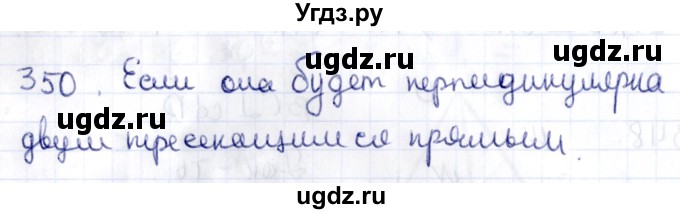 Угдз.ру
ugdz.ru ugdz.ru
350. Если она будет перпендикулярна
ugdz.ru ugdz.ru
двум пересекающимся прямым.
ugdz.ru ugdz.ru